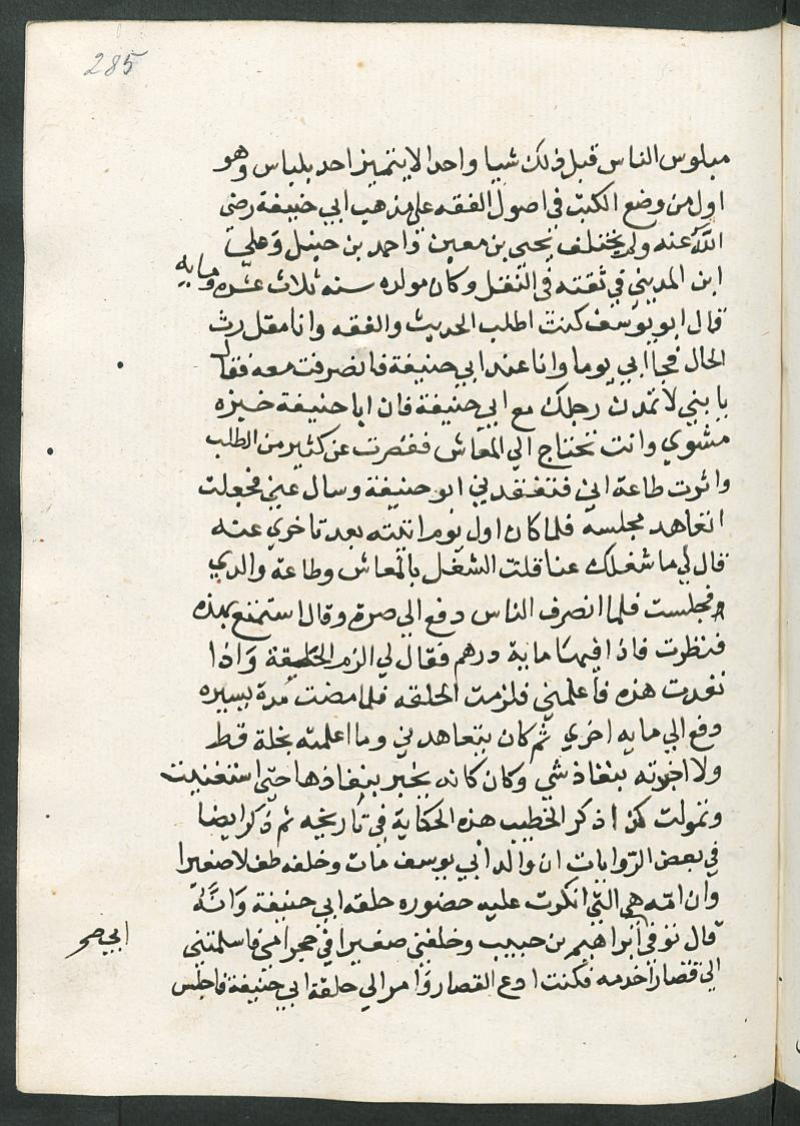 285
مبلوس الناس قبل ذلك شيا واحدا لا يتميز احد بلباس وهو
اول من وضع الكتب في اصول الفقه علي مذهب ابي حنيفة رضي
الله عنه ولم يختلف يحيي بن معين واحمد بن حنبل وعلي
ابن المديني في ثقته في النقل وكان مولده سنه ثلاث عشره ومايه
قال ابو يوسف كنت اطلب الحديث والفقه وانا مقل رث
الحال فجا ابي يوما وانا عند ابي حنيفة فانصرفت معه فقال
يا بني لا تمدن رجلك مع ابي حنيفة فان ابا حنيفة خبزه
مشوي وانت تحتاج الي المعاش فقصرت عن كثير من الطلب
واثرت طاعة ابي فتفقدني ابو حنيفة وسال عني فجعلت
اتعاهد مجلسه فلما كان اول يوم اتيته بعد تاخري عنه
قال لي ما شغلك عنا قلت الشغل بالمعاش وطاعة والدي
فجلست فلما انصرف الناس دفع الي صرة وقال استمتع بهذه
فنظرت فاذا فيها ماية درهم فقال لي الزم الحلقة واذا
نفدت هذه فاعلمني فلزمت الحلقه فلما مضت مدة يسيره
دفع الي مايه اخري ثم كان يتعاهدني وما اعلمته بخلة قط
ولا اخبرته بنفاذ شي وكان كانه يخبر بنفاذها حتي استغنيت
وتمولت هكذا ذكر الخطيب هذه الحكاية في تاريخه ثم ذكر ايضا
في بعض الروايات ان والد ابي يوسف مات وخلفه طفلا صغيرا
وان امه هي التي انكرت عليه حضوره حلقه ابي حنيفة وانه
قال توفي ابراهيم بن حبيب وخلفني صغيرا في حجر امي فاسلمتني
الي قصار اخدمه فكنت ادع القصار وامر الي حلقة ابي حنيفة فاجلس